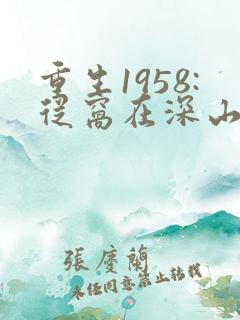 重生1958:
從窩在深山
張慶蘭
未經同意禁止轉載